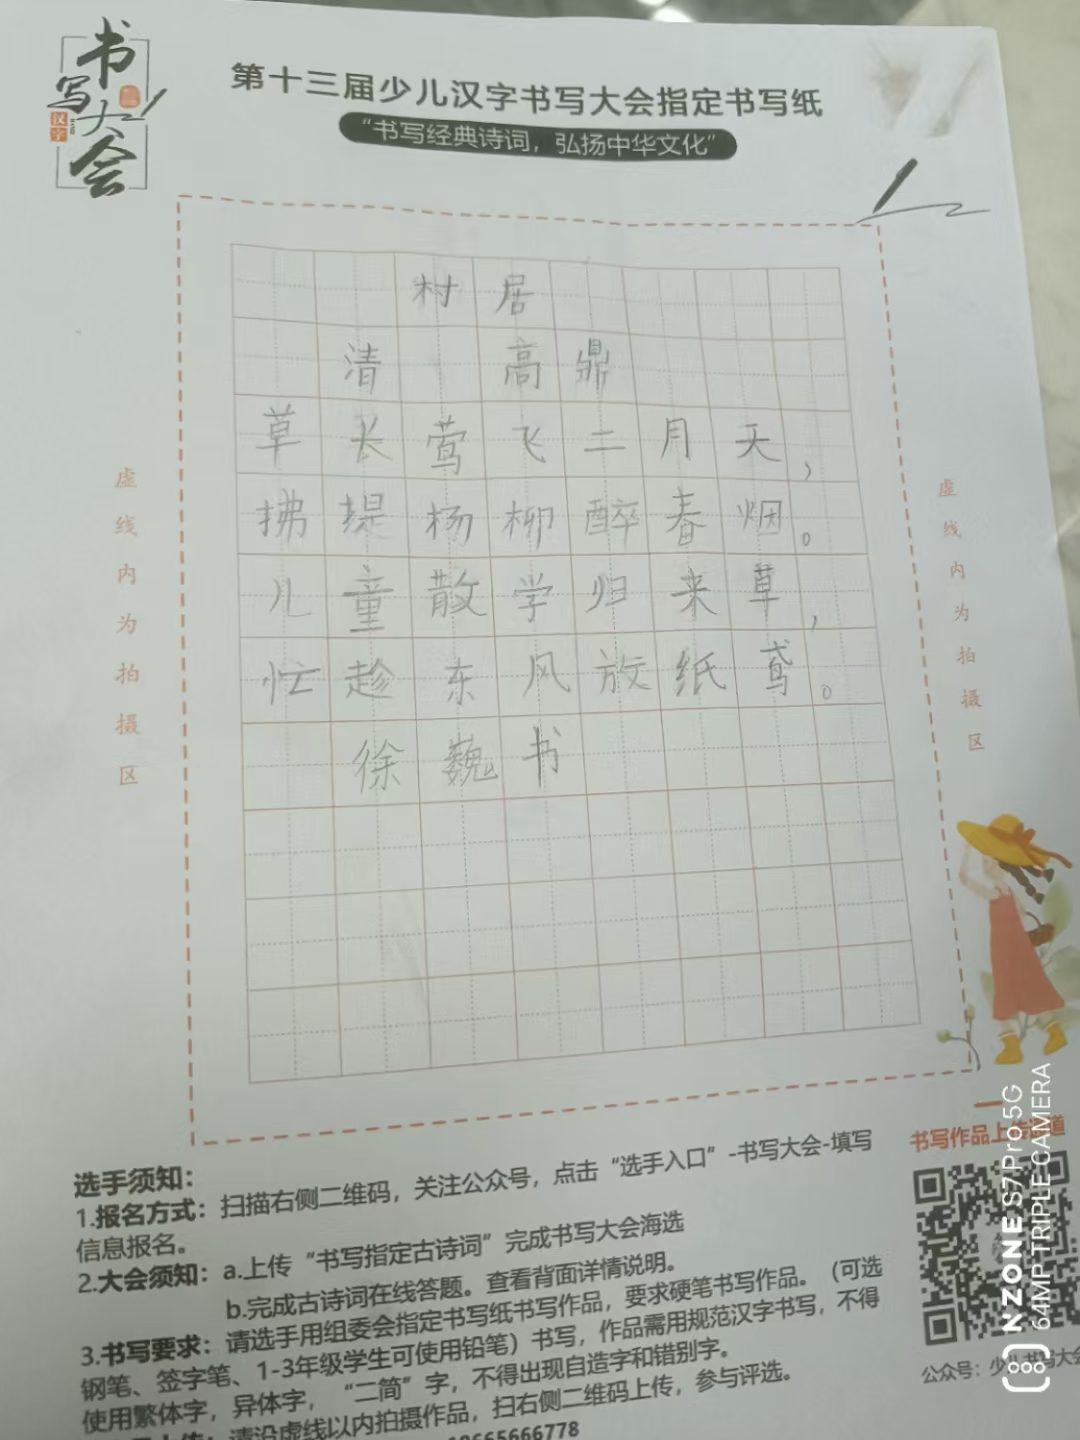 书写大会
汉字
第十三届少儿汉字书写大会指定书写纸
“书写经典诗词，弘扬中华文化”
村居
清 高鼎
草长莺飞二月天，
拂提杨柳醉春烟。
儿童散学归来草，
忙趁东风放纸鸢。
徐巍书
虚线内为拍摄区
虚线内为拍摄区
选手须知：
1.报名方式：扫描右侧二维码，关注公众号，点击“选手入口”-书写大会-填写
信息报名。
2.大会须知：a.上传“书写指定古诗词”完成书写大会海选
b.完成古诗词在线答题。查看背面详情说明。
3.书写要求：请选手用组委会指定书写纸书写作品，要求硬笔书写作品。（可选
钢笔、签字笔、1-3年级学生可使用铅笔）书写，作品需用规范汉字书写，不得
使用繁体字，异体字，“二简”字，不得出现自造字和错别字。
上传：请沿虚线以内拍摄作品，扫右侧二维码上传，参与评选。
18665666778
书写作品上传通道
公众号：少儿书写大会
NZONE S7 Pro 5G
64MP TRIPLE CAMERA